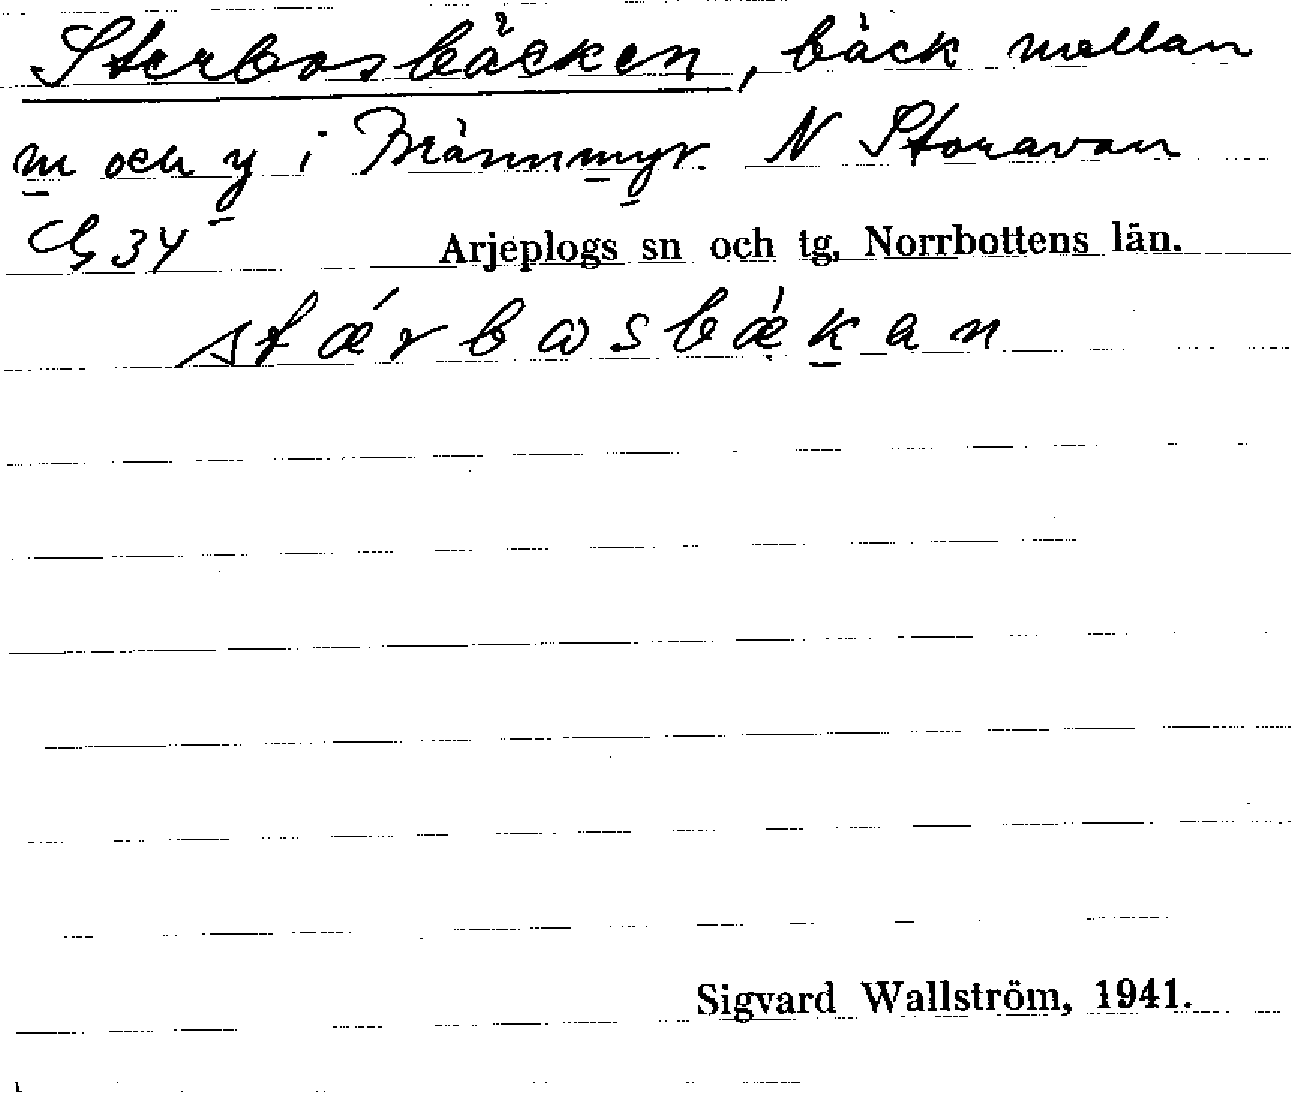 Sterbosbäcken, bäck mellan
m och y i Brännmyr. N Storavan
G 34 Arjeplogs sn och tg, Norrbottens län.
stǽrbωsbǽkan
Sigvard Wallström, 1941.